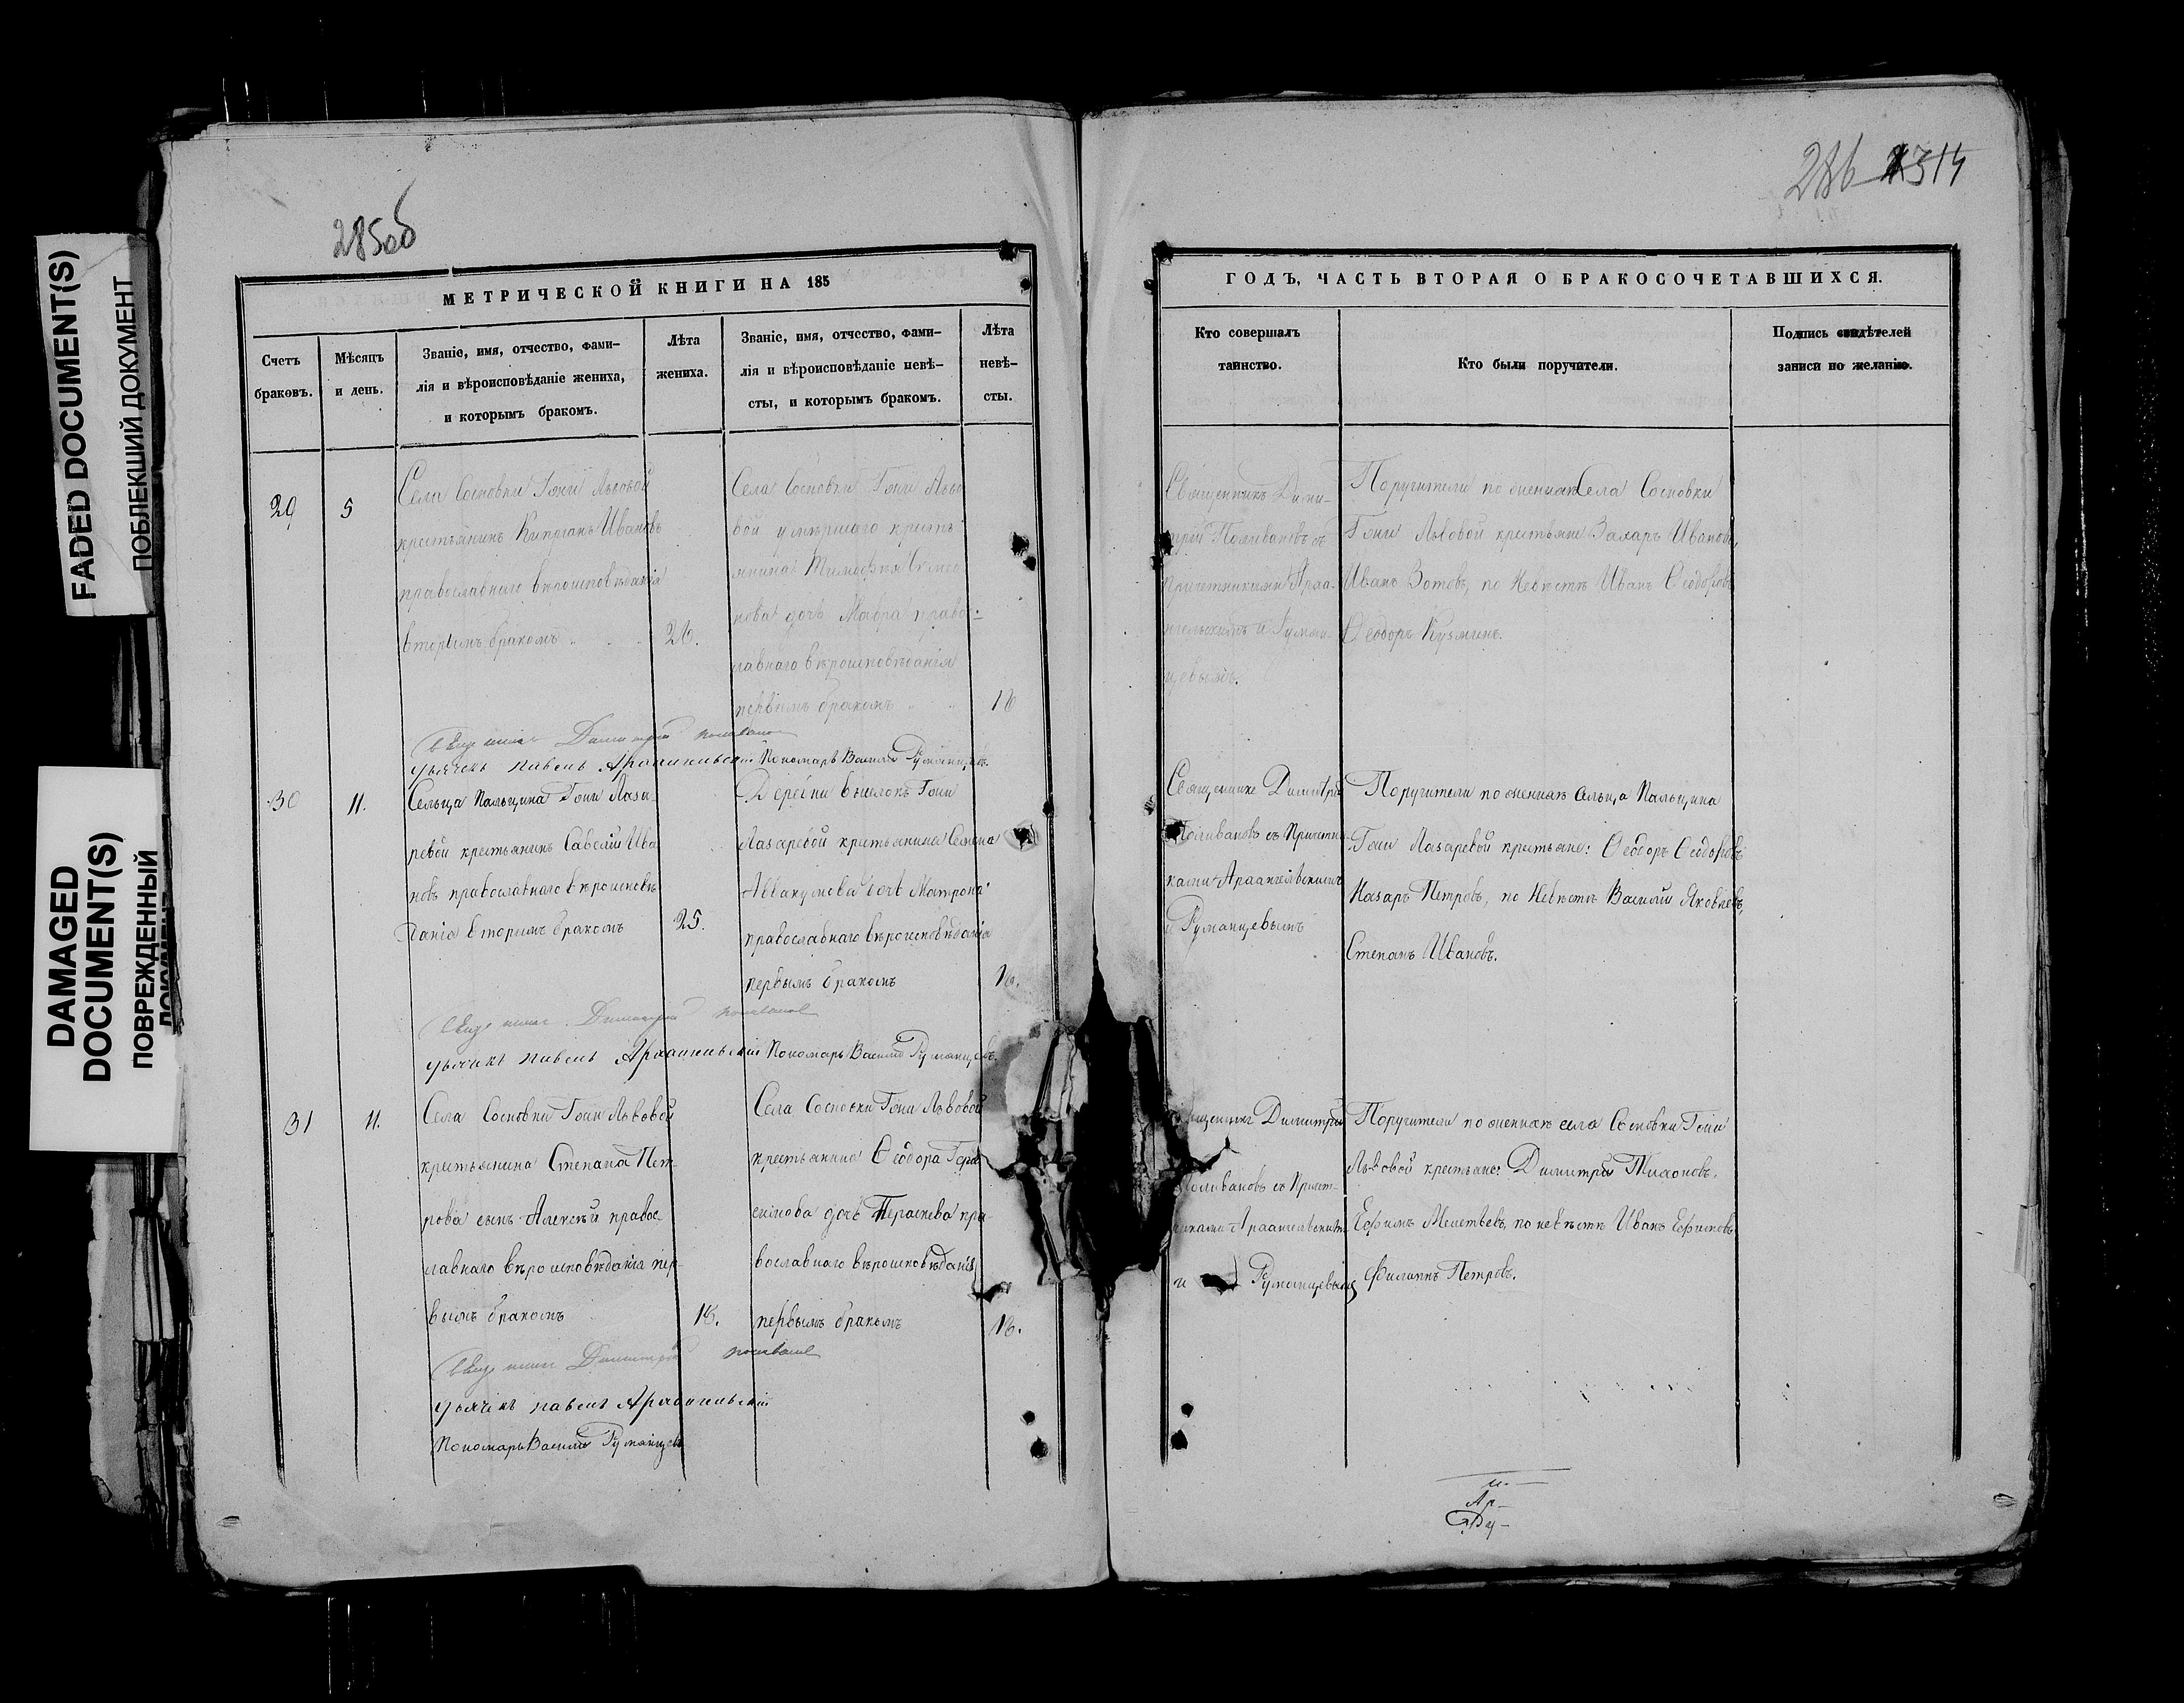 FADED DOCUMENT(S)
ПОБЛЕКШИЙ ДОКУМЕНТ
DAMAGED
DOCUMENT(S)
ПОВРЕЖДЕННЫЙ
ДОКУМЕНТ
285об
286 314
МЕТРИЧЕСКОЙ КНИГИ НА 185
Счетъ
браковъ.
Мѣсяцъ
и день.
Званіе, имя, отчество, фами-
лія и вѣроисповѣданіе жениха,
и которымъ бракомъ.
Лѣта
жениха.
Званіе, имя, отчество, фами-
лія и вѣроисповѣданіе невѣ-
сты, и которымъ бракомъ.
Лѣта
невѣ-
сты.
ГОДЪ, ЧАСТЬ ВТОРАЯ О БРАКОСОЧЕТАВШИХСЯ.
Кто совершалъ
таинство.
Кто были поручители.
Подпись свидѣтелей
записи по желанію.
29
5
Села Сосновки Гжи Львовой
крестьянинъ Кипріанъ Ивановъ
православнаго вѣроисповѣданія
вторымъ бракомъ
26.
Села Сосновки Гжи Льво
вой умершаго кресть
янина Тимофея
нова дочь Мавра право-
славнаго вѣроисповѣданія
первымъ бракомъ
18
Священникъ Дими-
трій Поливановъ съ
причетниками Арха-
нгельскимъ и Румян-
цевымъ.
Поручители по женихѣ Села Сосновки
Гжи Львовой крестьяне Захаръ Ивановъ,
Иванъ Зотовъ, по невѣстѣ Иванъ Ѳеодоровъ
Ѳеодоръ Кузминъ.
Священникъ Димитрій Поливановъ
Дьячекъ Павелъ Архангельскій Пономарь Василій Румянцевъ.
30
11.
Сельца Пальцина Гжи Лаза-
ревой крестьянинъ Савелій Ива
новъ православнаго вѣроисповѣ
данія вторымъ бракомъ
25.
Деревни Выселокъ Гжи
Лазаревой крестьянина Семена
Аввакумова дочь Матрона
православнаго вѣроисповѣданія
первымъ бракомъ
18.
Священникъ Димитрій
Поливановъ съ Причетни-
ками Архангельскимъ
и Румянцевымъ
Поручители по женихѣ сельца Пальцина
Гжи Лазаревой крестьяне: Ѳеодоръ Ѳеодоровъ
Назаръ Петровъ, по невѣстѣ Василій Яковлевъ,
Степанъ Ивановъ.
Священникъ Димитрій Поливановъ
Дьячекъ Павелъ Архангельскій Пономарь Василій Румянцевъ.
31
11.
Села Сосновки Гжи Львовой
крестьянина Степана Пет-
рова сынъ Алексѣй правос-
лавнаго вѣроисповѣданія пер-
вымъ бракомъ
18.
Села Сосновки Гжи Львовой
крестьянина Ѳеодора Гера
симова дочь Параскева пра-
вославнаго вѣроисповѣданія
первымъ бракомъ
18.
Священникъ Димитрій
Поливановъ съ Причет-
никами Архангельскимъ
и Румянцевымъ
Поручители по женихѣ села Сосновки Гжи
Львовой крестьяне: Димитрій Тихоновъ,
Ефимъ Мелетьевъ, по невѣстѣ Иванъ Ефимовъ
Филиппъ Петровъ.
Священникъ Димитрій Поливановъ
Дьячекъ Павелъ Архангельскій
Пономарь Василій Румянцевъ